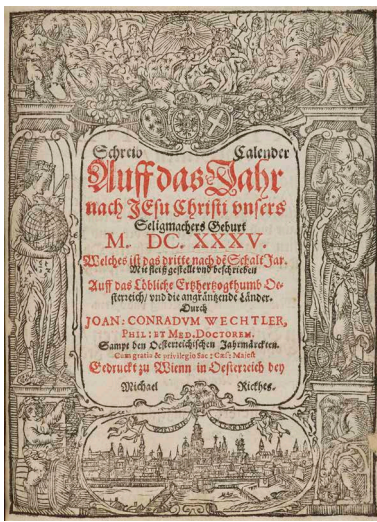 Schreib Calender
Auff das Jahr
nach JEsu Christi vnsers
Seligmachers Geburt
M. DC. XXXV.
Welches ist das dritte nach dẽ Schalt Jar.
Mit fleiß gestellt vnd beschrieben
Auff das Löbliche Ertzhertzogthumb Oe-
sterreich/ vnd die angräntzende Länder.
Durch
JOAN: CONRADVM WECHTLER,
PHIL: ET MED. DOCTOREM.
Sampt den Oesterreichischen Jahrmärckten.
Cum gratia & privilegio Sac: Cæs: Majest
Gedruckt zu Wienn in Oesterreich bey
Michael Rickhes.